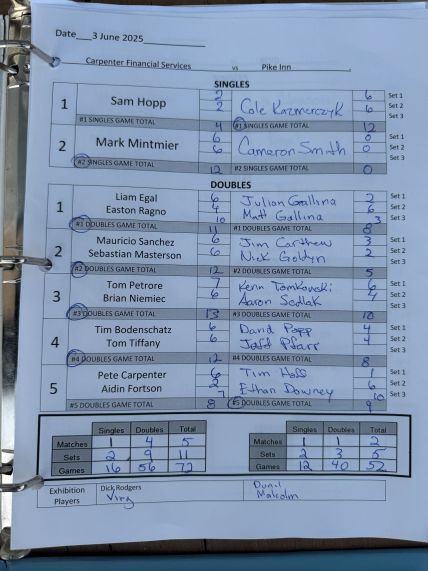 Date___3 June 2025___
Carpenter Financial Services vs Pike Inn
SINGLES
1 Sam Hopp 2 Cole Kazmerczyk 6 Set 1
2 6 Set 2
Set 3
#1 SINGLES GAME TOTAL 4 #1 SINGLES GAME TOTAL 12
2 Mark Mintmier 6 Cameron Smith 0 Set 1
6 0 Set 2
Set 3
#2 SINGLES GAME TOTAL 12 #2 SINGLES GAME TOTAL 0
DOUBLES
1 Liam Egal 6 Julian Gallina 2 Set 1
Easton Ragno 4 Matt Gallina 6 Set 2
10 3 Set 3
#1 DOUBLES GAME TOTAL 11 #1 DOUBLES GAME TOTAL 8
2 Mauricio Sanchez 6 Jim Carthew 3 Set 1
Sebastian Masterson 6 Nick Goldyn 2 Set 2
Set 3
#2 DOUBLES GAME TOTAL 12 #2 DOUBLES GAME TOTAL 5
3 Tom Petrore 7 Kenn Tomkovski 6 Set 1
Brian Niemiec 6 Aaron Sedlak 4 Set 2
Set 3
#3 DOUBLES GAME TOTAL 13 #3 DOUBLES GAME TOTAL 10
4 Tim Bodenschatz 6 David Popp 4 Set 1
Tom Tiffany 6 Jeff Pfarr 4 Set 2
Set 3
#4 DOUBLES GAME TOTAL 12 #4 DOUBLES GAME TOTAL 8
5 Pete Carpenter 6 Tim Hoss 1 Set 1
Aidin Fortson 2 Ethan Downey 6 Set 2
7 10 Set 3
#5 DOUBLES GAME TOTAL 8 #5 DOUBLES GAME TOTAL 9
Singles Doubles Total Singles Doubles Total
Matches 1 4 5 Matches 1 1 2
Sets 2 9 11 Sets 2 3 5
Games 16 56 72 Games 12 40 52
Exhibition Players Dick Rodgers
Virg
Malcolm